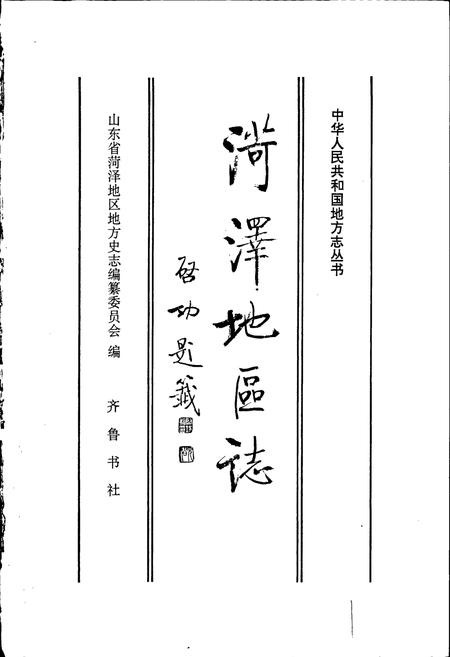 中华人民共和国地方志丛书
菏澤地區誌
启功题签
山东省菏泽地区地方史志编纂委员会 编
齐鲁书社